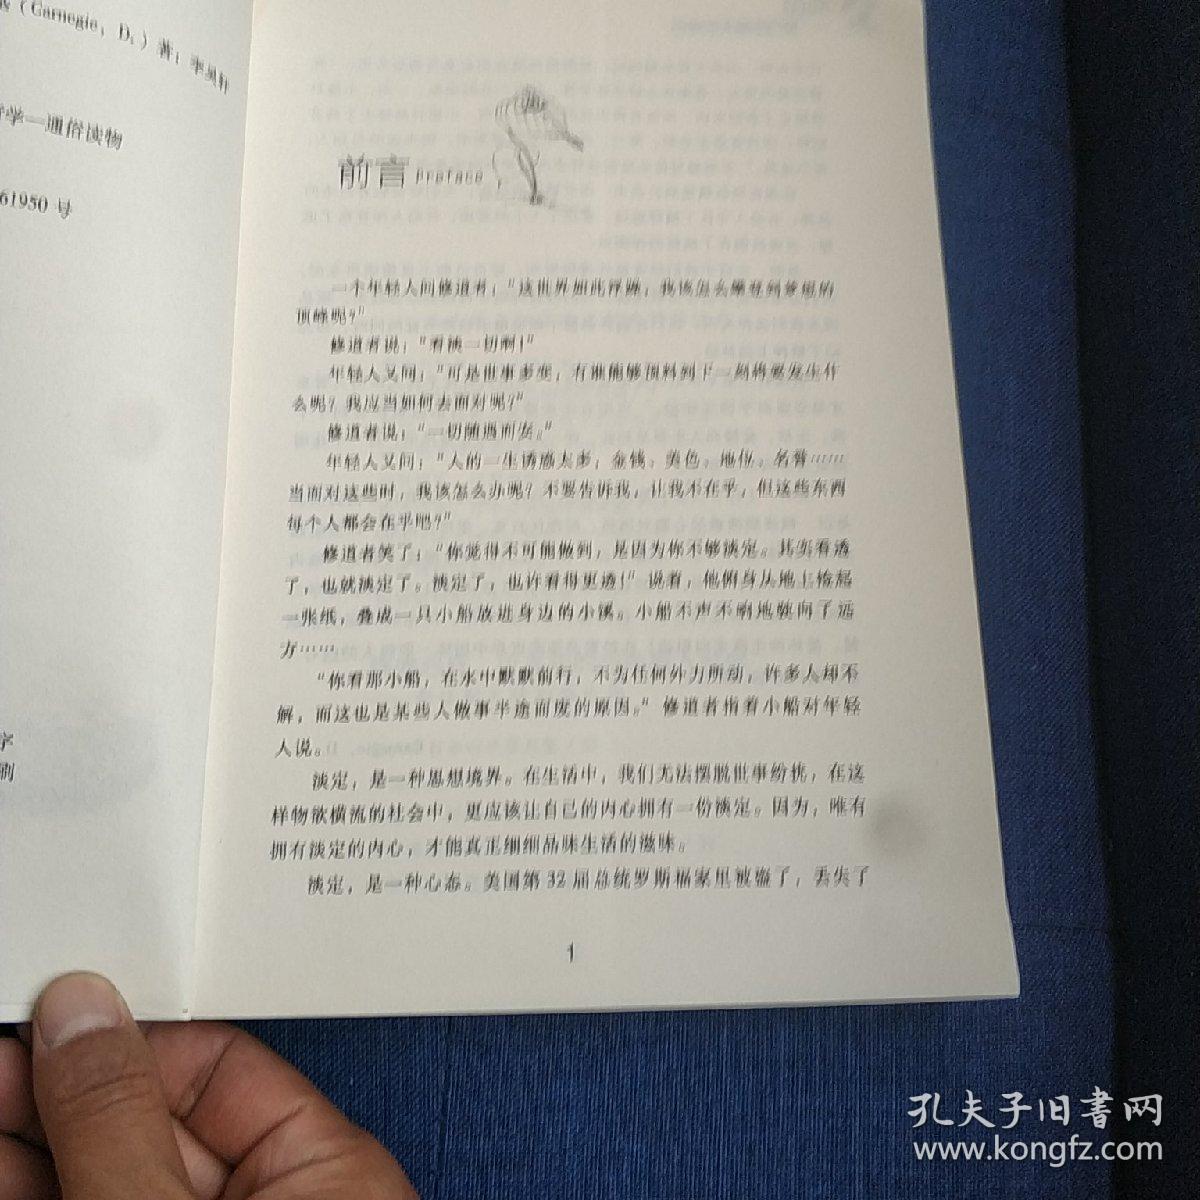 (Carnegie, D.) 著; 李昊轩
学—通俗读物
61950 号
字
刷
前言 Preface
一个年轻人问修道者：“这世界如此浮躁，我该怎么攀登到梦想的
顶峰呢？”
修道者说：“看淡一切啊！”
年轻人又问：“可是世事多变，有谁能够预料到下一刻将要发生什
么呢？我应当如何去面对呢？”
修道者说：“一切随遇而安。”
年轻人又问：“人的一生诱惑太多，金钱、美色、地位、名誉……
当面对这些时，我该怎么办呢？不要告诉我，让我不在乎，但这些东西
每个人都会在乎吧？”
修道者笑了：“你觉得不可能做到，是因为你不够淡定。其实看透
了，也就淡定了。淡定了，也许看得更透！”说着，他俯身从地上捡起
一张纸，叠成一只小船放进身边的小溪。小船不声不响地驶向了远
方……
“你看那小船，在水中默默前行，不为任何外力所动，许多人却不
解，而这也是某些人做事半途而废的原因。”修道者指着小船对年轻
人说。
淡定，是一种思想境界。在生活中，我们无法摆脱世事纷扰，在这
样物欲横流的社会中，更应该让自己的内心拥有一份淡定。因为，唯有
拥有淡定的内心，才能真正细细品味生活的滋味。
淡定，是一种心态。美国第 32 届总统罗斯福家里被盗了，丢失了
1
孔夫子旧书网
www.kongfz.com